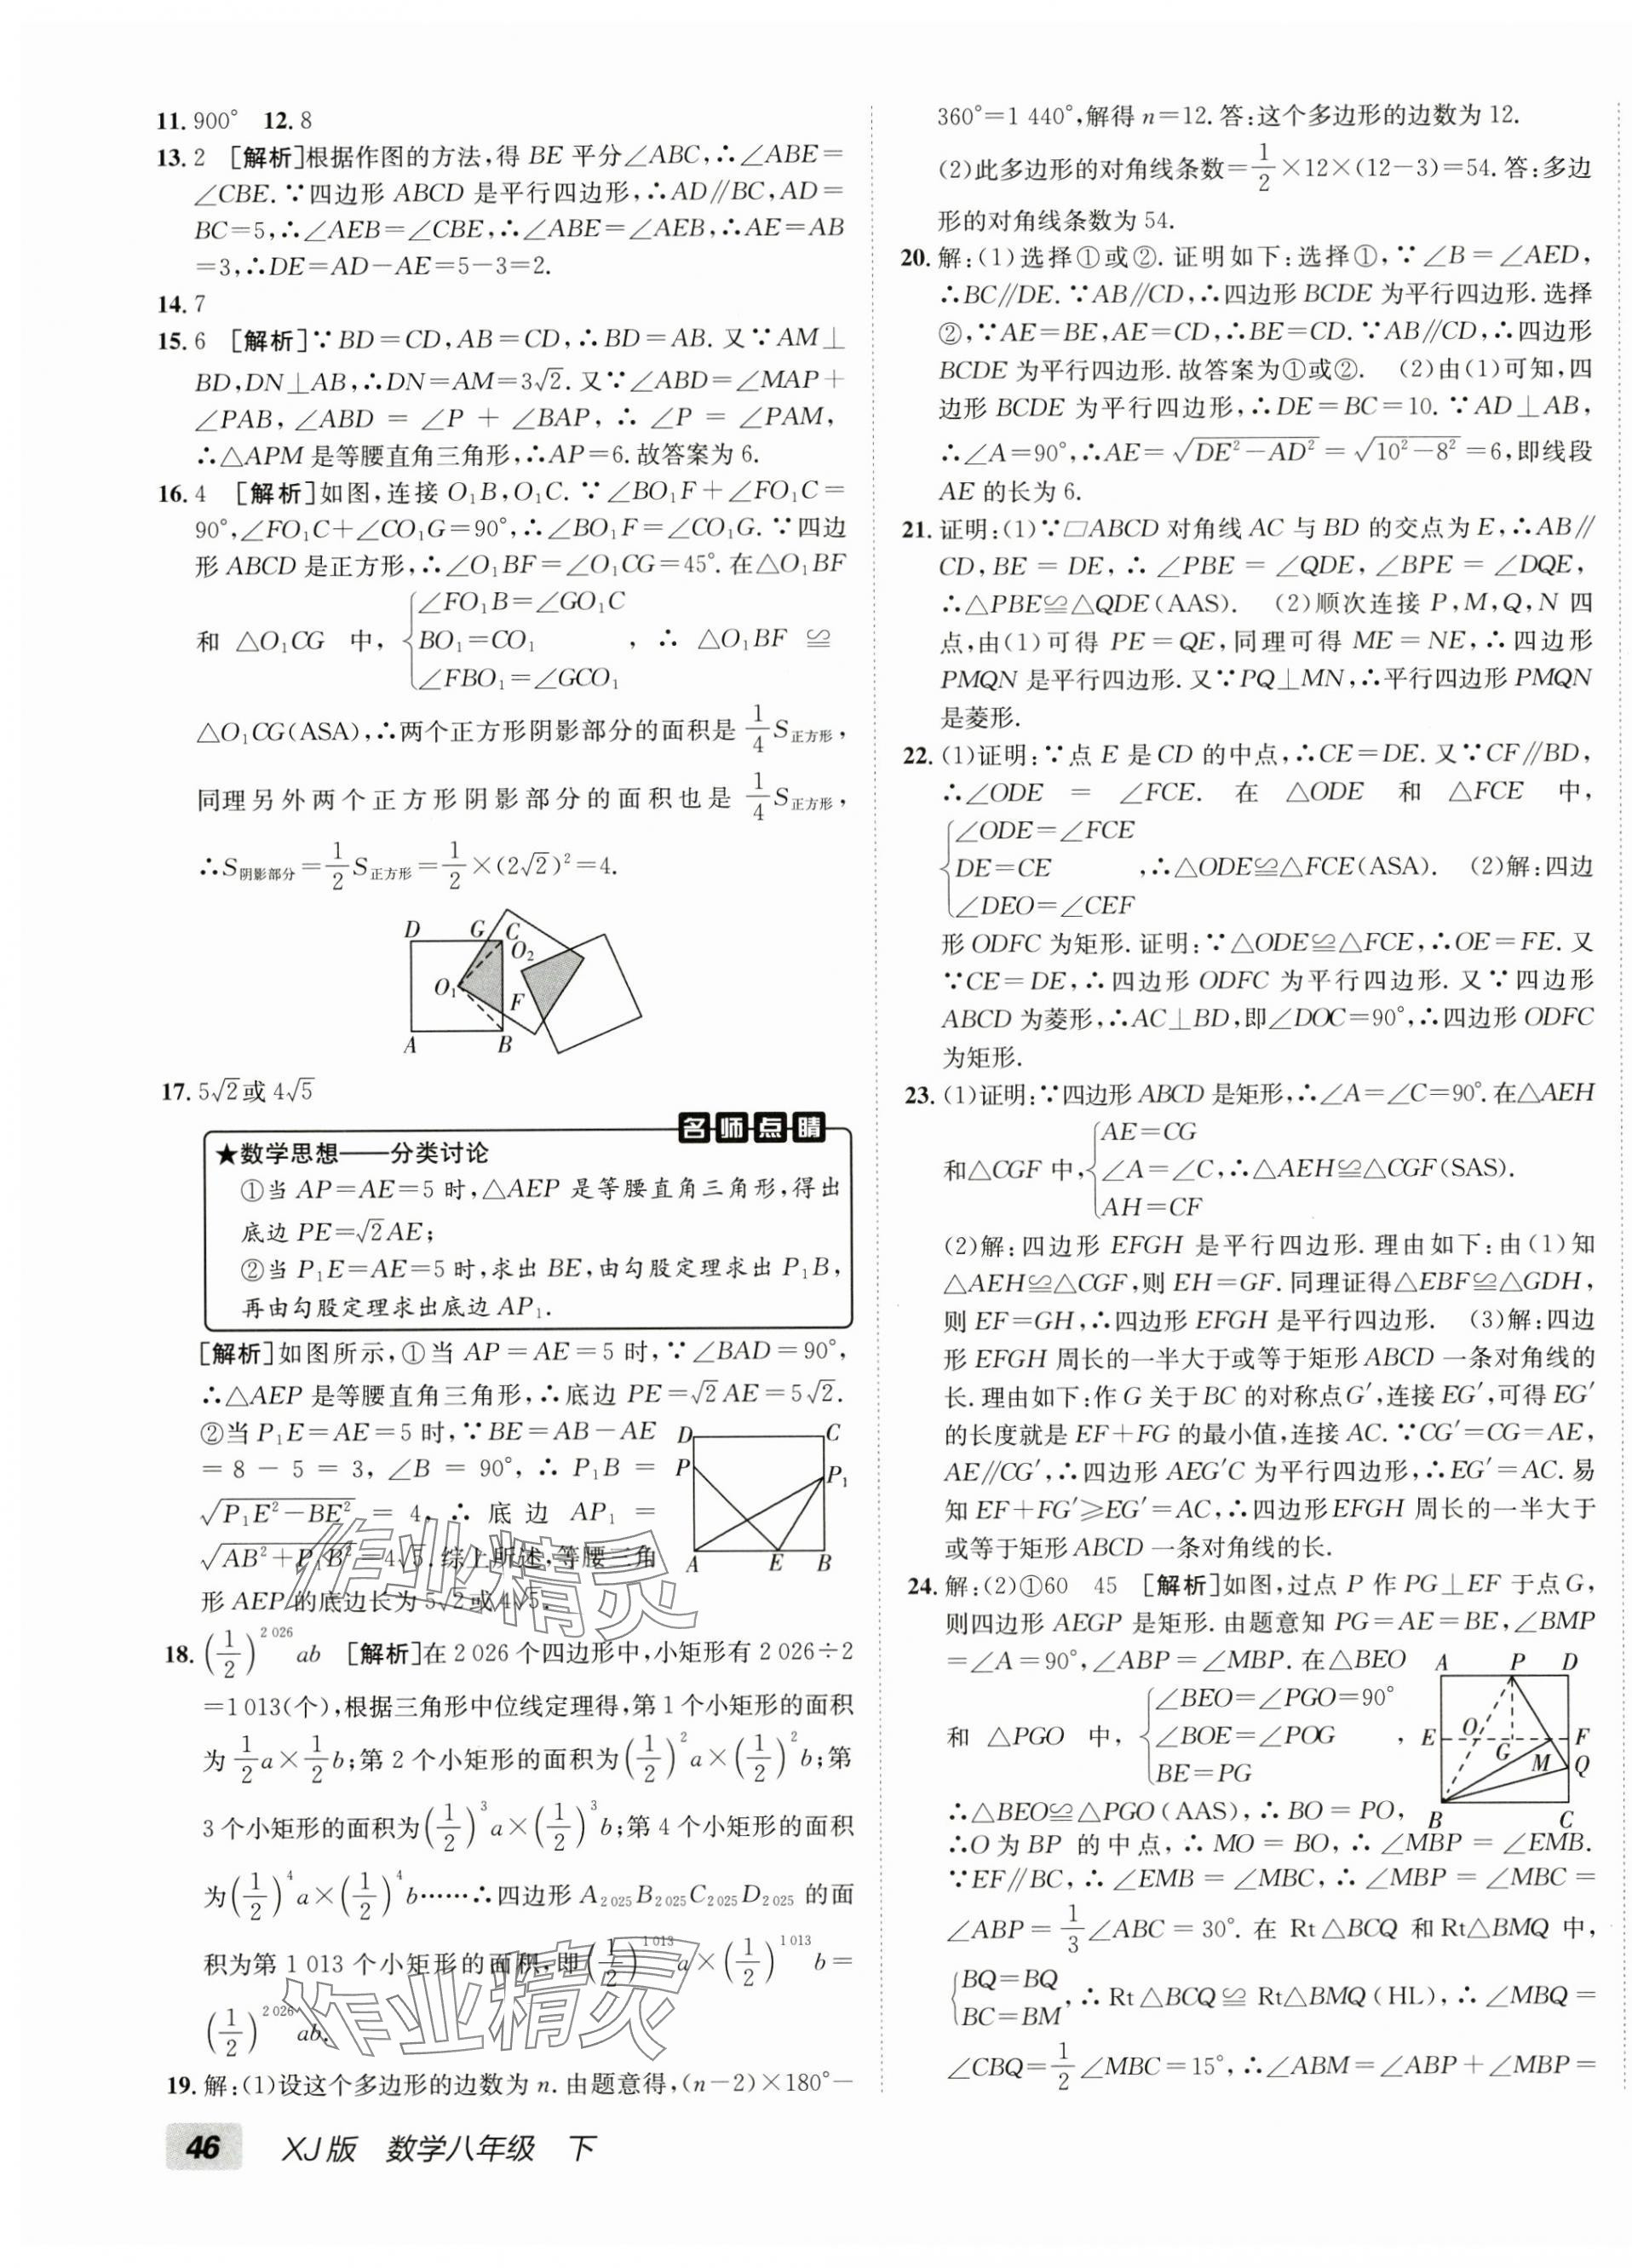 11. 900°　12. 8
13. 2　[解析]根据作图的方法,得 BE 平分∠ABC,∴∠ABE=
∠CBE.∵四边形 ABCD 是平行四边形,∴AD∥BC,AD=
BC=5,∴∠AEB=∠CBE,∴∠ABE=∠AEB,∴AE=AB
=3,∴DE=AD-AE=5-3=2.
14. 7
15. 6　[解析]∵BD=CD,AB=CD,∴BD=AB.又∵AM⊥
BD,DN⊥AB,∴DN=AM=3√2.又∵∠ABD=∠MAP+
∠PAB,∠ABD=∠P+∠BAP,∴∠P=∠PAM,
∴△APM 是等腰直角三角形,∴AP=6.故答案为6.
16. 4　[解析]如图,连接 O₁B,O₁C.∵∠BO₁F+∠FO₁C=
90°,∠FO₁C+∠CO₁G=90°,∴∠BO₁F=∠CO₁G.∵四边
形 ABCD 是正方形,∴∠O₁BF=∠O₁CG=45°.在△O₁BF
和 △O₁CG 中,{∠FO₁B=∠GO₁C
BO₁=CO₁
∠FBO₁=∠GCO₁ ,∴ △O₁BF ≌
△O₁CG(ASA),∴两个正方形阴影部分的面积是 1/4 S正方形,
同理另外两个正方形阴影部分的面积也是 1/4 S正方形,
∴S阴影部分=1/2 S正方形=1/2×(2√2)²=4.
D G C O₂ O₁ F A B
17. 5√2或 4√5
名师点睛
★数学思想——分类讨论
①当 AP=AE=5 时,△AEP 是等腰直角三角形,得出
底边 PE=√2AE;
②当 P₁E=AE=5 时,求出 BE,由勾股定理求出 P₁B,
再由勾股定理求出底边 AP₁.
[解析]如图所示,①当 AP=AE=5 时,∵∠BAD=90°,
∴△AEP 是等腰直角三角形,∴底边 PE=√2AE=5√2.
②当 P₁E=AE=5 时,∵BE=AB-AE
=8-5=3,∠B=90°,∴P₁B=
√(P₁E²-BE²)=4,∴底边 AP₁=
√(AB²+P₁B²)=4√5.综上所述,等腰三角
形 AEP 的底边长为 5√2或 4√5.
D C P P₁ A E B
18. (1/2)^2 026 ab　[解析]在 2 026 个四边形中,小矩形有 2 026÷2
=1 013(个),根据三角形中位线定理得,第 1 个小矩形的面积
为 1/2 a×1/2 b;第 2 个小矩形的面积为(1/2)²a×(1/2)²b;第
3 个小矩形的面积为(1/2)³a×(1/2)³b;第 4 个小矩形的面积
为(1/2)⁴a×(1/2)⁴b……∴四边形 A₂ ₀₂₅B₂ ₀₂₅C₂ ₀₂₅D₂ ₀₂₅ 的面
积为第 1 013 个小矩形的面积,即(1/2)^1 013 a×(1/2)^1 013 b=
(1/2)^2 026 ab.
19. 解:(1)设这个多边形的边数为 n.由题意得,(n-2)×180°-
46　XJ版　数学八年级　下
360°=1 440°,解得 n=12.答:这个多边形的边数为 12.
(2)此多边形的对角线条数=1/2×12×(12-3)=54.答:多边
形的对角线条数为 54.
20. 解:(1)选择①或②.证明如下:选择①,∵∠B=∠AED,
∴BC∥DE.∵AB∥CD,∴四边形 BCDE 为平行四边形.选择
②,∵AE=BE,AE=CD,∴BE=CD.∵AB∥CD,∴四边形
BCDE 为平行四边形.故答案为①或②.　(2)由(1)可知,四
边形 BCDE 为平行四边形,∴DE=BC=10.∵AD⊥AB,
∴∠A=90°,∴AE=√(DE²-AD²)=√(10²-8²)=6,即线段
AE 的长为 6.
21. 证明:(1)∵▱ABCD 对角线 AC 与 BD 的交点为 E,∴AB∥
CD,BE=DE,∴∠PBE=∠QDE,∠BPE=∠DQE,
∴△PBE≌△QDE(AAS).　(2)顺次连接 P,M,Q,N 四
点,由(1)可得 PE=QE,同理可得 ME=NE,∴四边形
PMQN 是平行四边形.又∵PQ⊥MN,∴平行四边形 PMQN
是菱形.
22. (1)证明:∵点 E 是 CD 的中点,∴CE=DE.又∵CF∥BD,
∴∠ODE = ∠FCE. 在 △ODE 和 △FCE 中,
{∠ODE=∠FCE
DE=CE
∠DEO=∠CEF ,∴△ODE≌△FCE(ASA).　(2)解:四边
形 ODFC 为矩形.证明:∵△ODE≌△FCE,∴OE=FE.又
∵CE=DE,∴四边形 ODFC 为平行四边形.又∵四边形
ABCD 为菱形,∴AC⊥BD,即∠DOC=90°,∴四边形 ODFC
为矩形.
23. (1)证明:∵四边形 ABCD 是矩形,∴∠A=∠C=90°.在△AEH
和△CGF 中,{AE=CG
∠A=∠C
AH=CF ,∴△AEH≌△CGF(SAS).
(2)解:四边形 EFGH 是平行四边形.理由如下:由(1)知
△AEH≌△CGF,则 EH=GF.同理证得△EBF≌△GDH,
则 EF=GH,∴四边形 EFGH 是平行四边形.　(3)解:四边
形 EFGH 周长的一半大于或等于矩形 ABCD 一条对角线的
长.理由如下:作 G 关于 BC 的对称点 G′,连接 EG′,可得 EG′
的长度就是 EF+FG 的最小值,连接 AC.∵CG′=CG=AE,
AE∥CG′,∴四边形 AEG′C 为平行四边形,∴EG′=AC.易
知 EF+FG′≥EG′=AC,∴四边形 EFGH 周长的一半大于
或等于矩形 ABCD 一条对角线的长.
24. 解:(2)①60　45　[解析]如图,过点 P 作 PG⊥EF 于点 G,
则四边形 AEGP 是矩形.由题意知 PG=AE=BE,∠BMP
=∠A=90°,∠ABP=∠MBP.在△BEO
和 △PGO 中,{∠BEO=∠PGO=90°
∠BOE=∠POG
BE=PG ,
∴△BEO≌△PGO(AAS),∴BO=PO,
A P D E O G M F Q B C
∴O 为 BP 的中点,∴MO=BO,∴∠MBP=∠EMB.
∵EF∥BC,∴∠EMB=∠MBC,∴∠MBP=∠MBC=
∠ABP=1/3∠ABC=30°.在 Rt△BCQ 和Rt△BMQ 中,
{BQ=BQ
BC=BM ,∴Rt△BCQ≌Rt△BMQ(HL),∴∠MBQ=
∠CBQ=1/2∠MBC=15°,∴∠ABM=∠ABP+∠MBP=
作业精灵
作业精灵